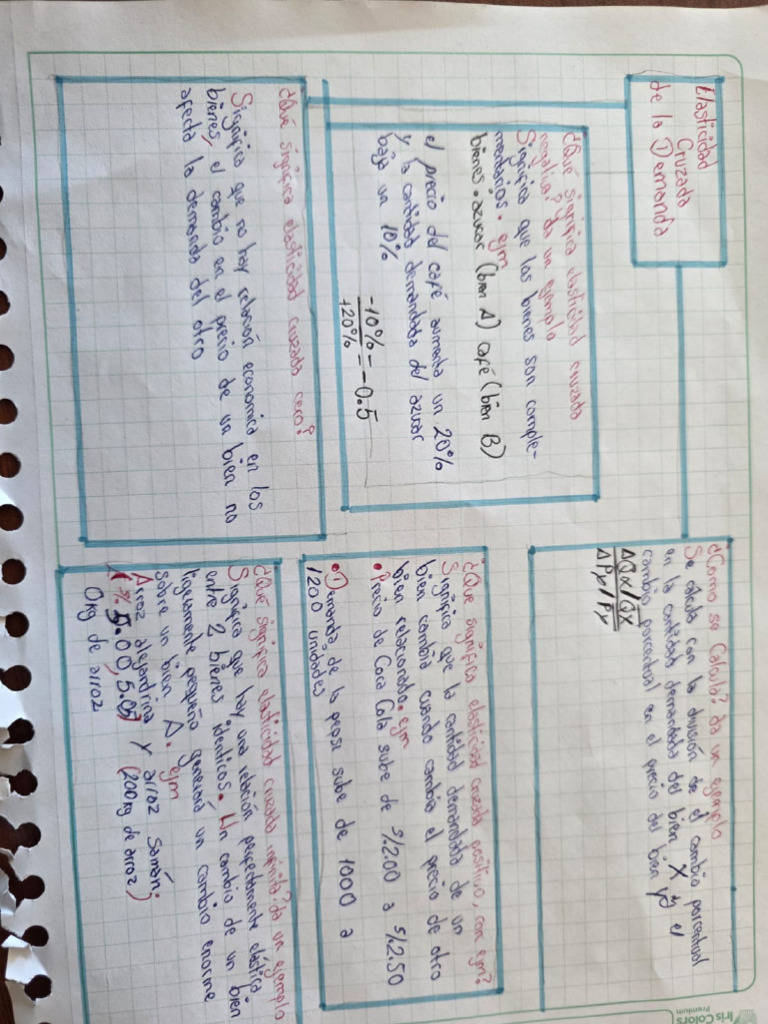 Elasticidad
Cruzada
de la Demanda
¿Como se Calcula? da un ejemplo
Se calcula con la división de el cambio porcentual
en la cantidad demandada del bien X y el
cambio porcentual en el precio del bien y
ΔQx/Qx
ΔPy/Py
¿Qué significa elasticidad cruzada
negativa? da un ejemplo
Significa que los bienes son comple-
mentarios. ejm
bienes: azucar (bien A) café (bien B)
el precio del café aumenta un 20%
y la cantidad demandada del azucar
baja un 10%
-10% = -0.5
+20%
¿Qué significa elasticidad cruzada positivo, con ejm?
Significa que la cantidad demandada de un
bien cambia cuando cambia el precio de otro
bien relacionado. ejm
• Precio de Coca Cola sube de S/.2.00 a S/.2.50
• Demanda de la pepsi sube de 1000 a
1200 unidades
¿Qué significa elasticidad cruzada cero?
Significa que no hay relación economica en los
bienes, el cambio en el precio de un bien no
afecta la demanda del otro
¿Qué significa elasticidad cruzada infinita? da un ejemplo
Significa que hay una relación perfectamente elástica
entre 2 bienes identicos. Un cambio de un bien
ligeramente pequeño generará un cambio enorme
sobre un bien A. ejm
Arroz alejandrina y arroz Samán:
5.00, 5.05) (200kg de arroz,)
0kg de arroz
Iris Colors
Premium